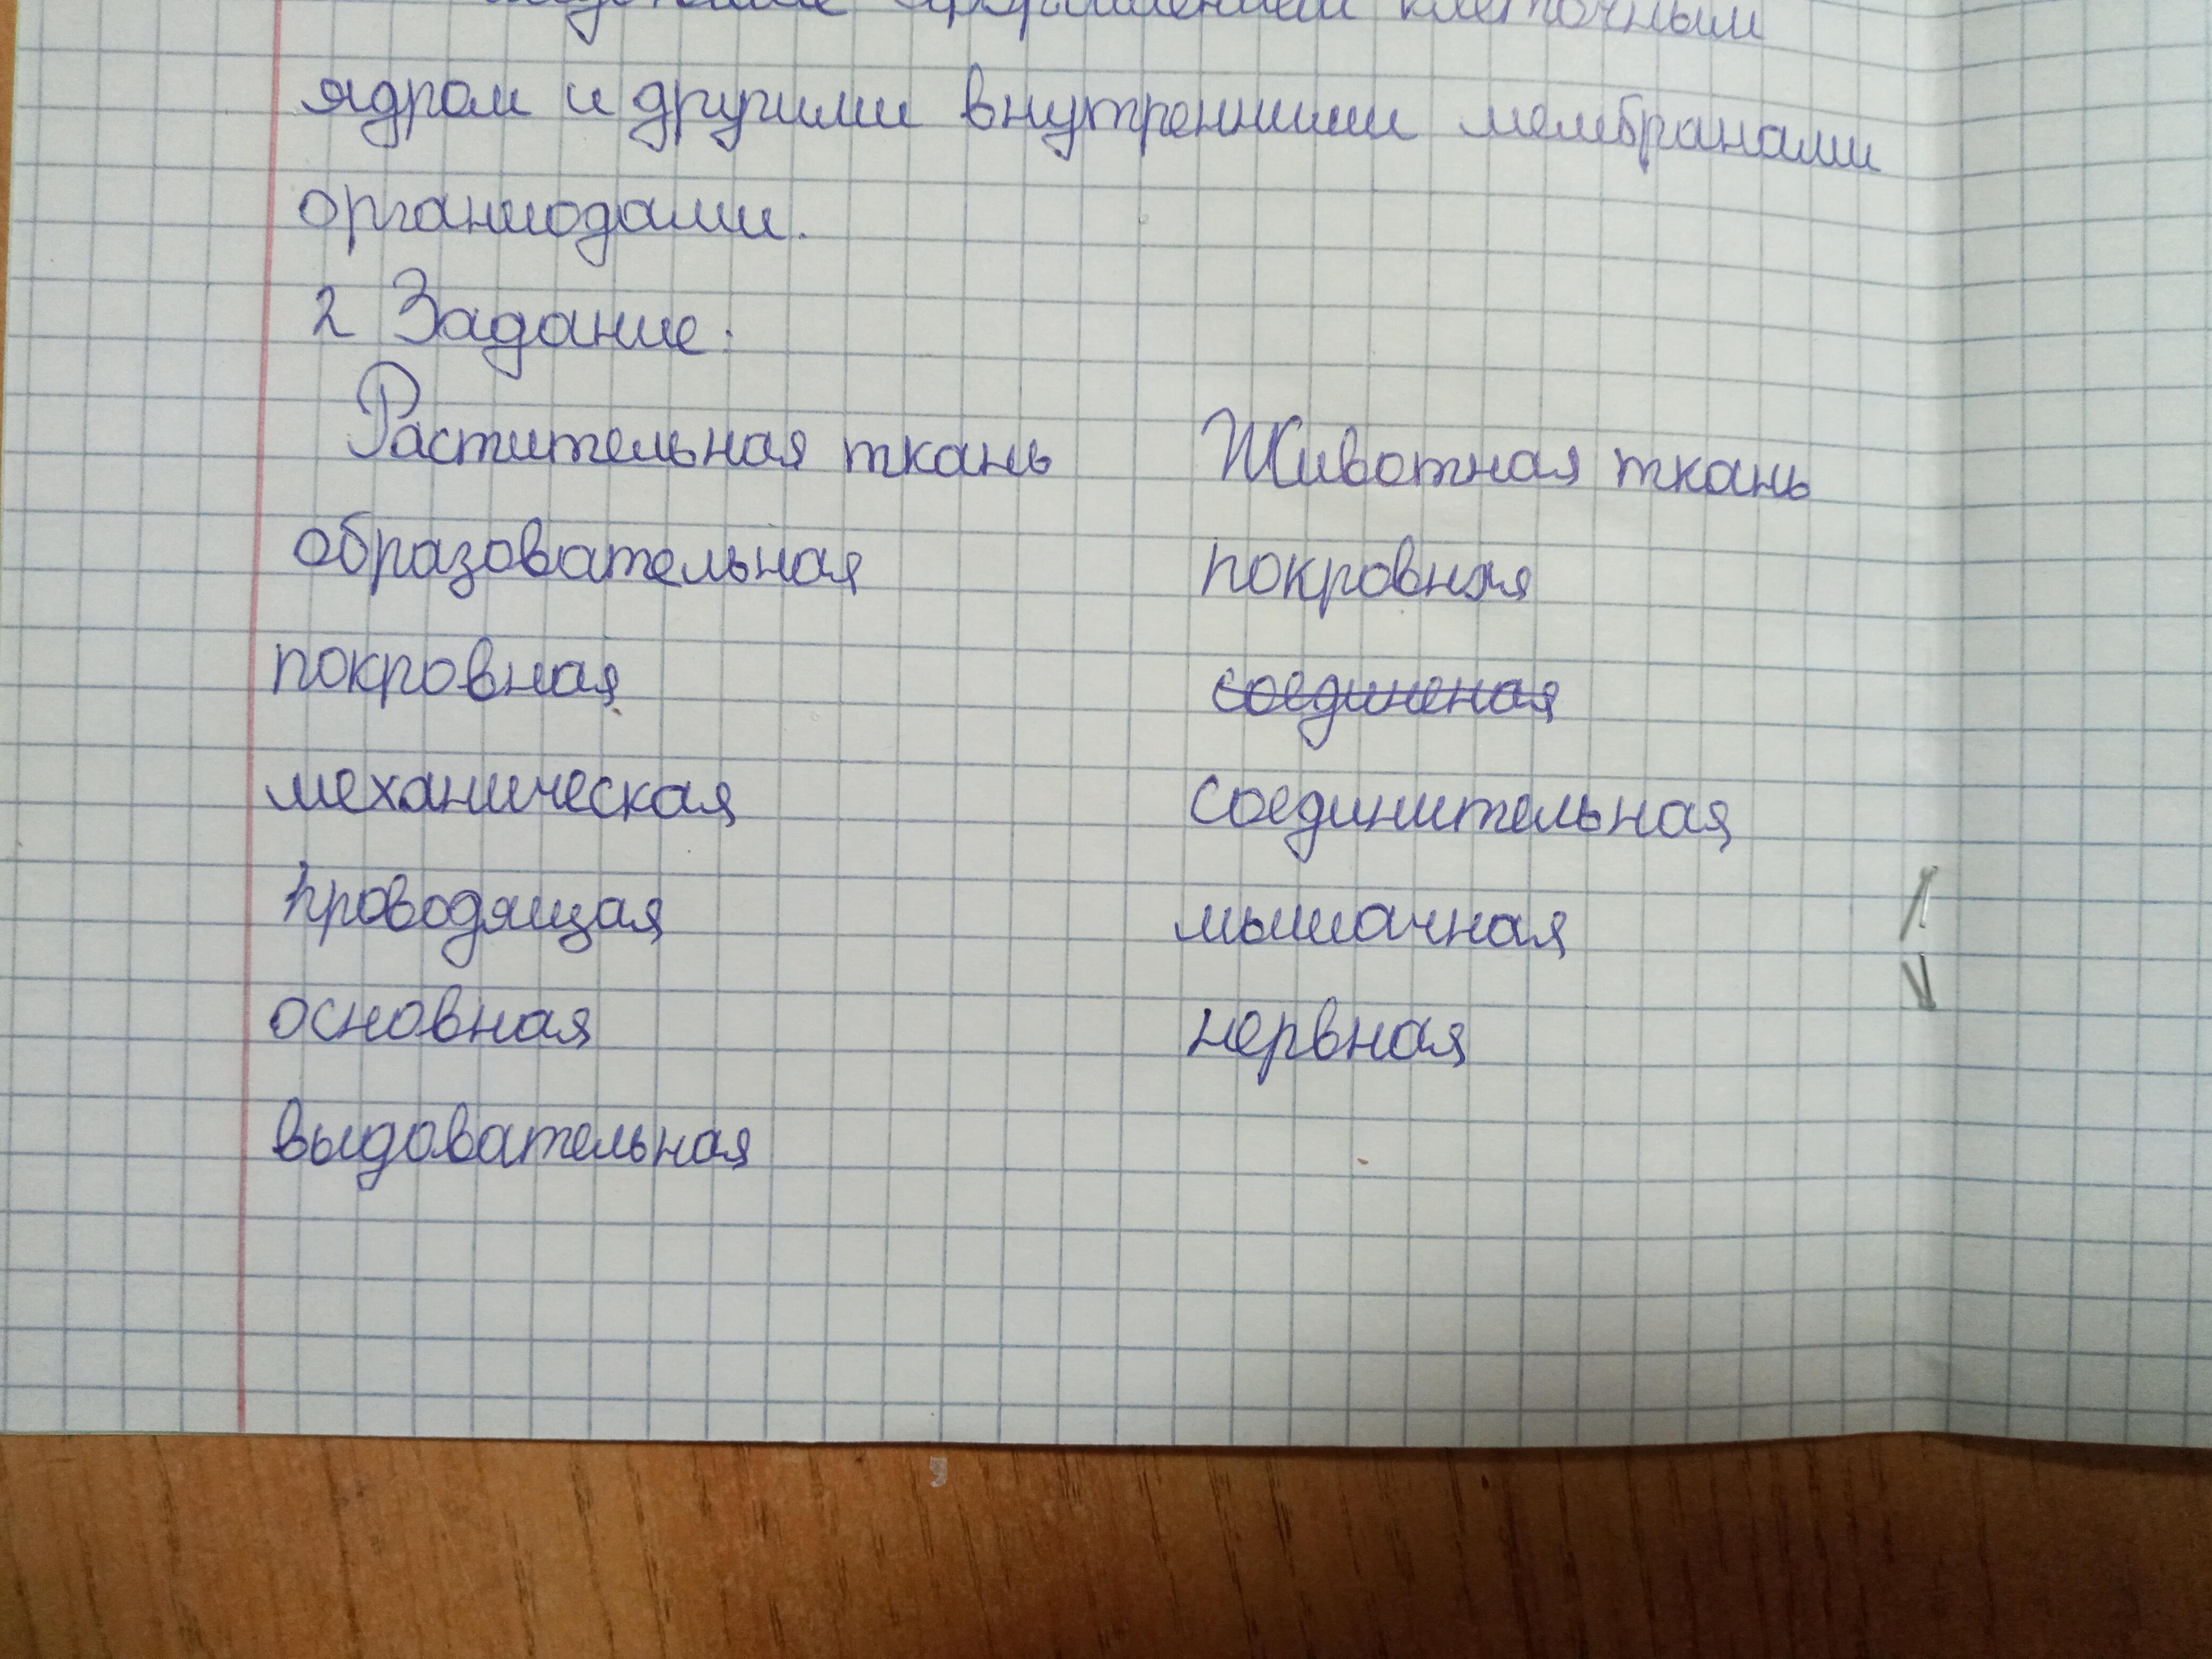 клеточным
ядром и другими внутренними мембранами
органиодами.
2 Задание:
Растительная ткань Животная ткань
образовательная покровная
покровная соединеная
механическая соединительная
проводящая мышачная
основная нервная
выдовательная